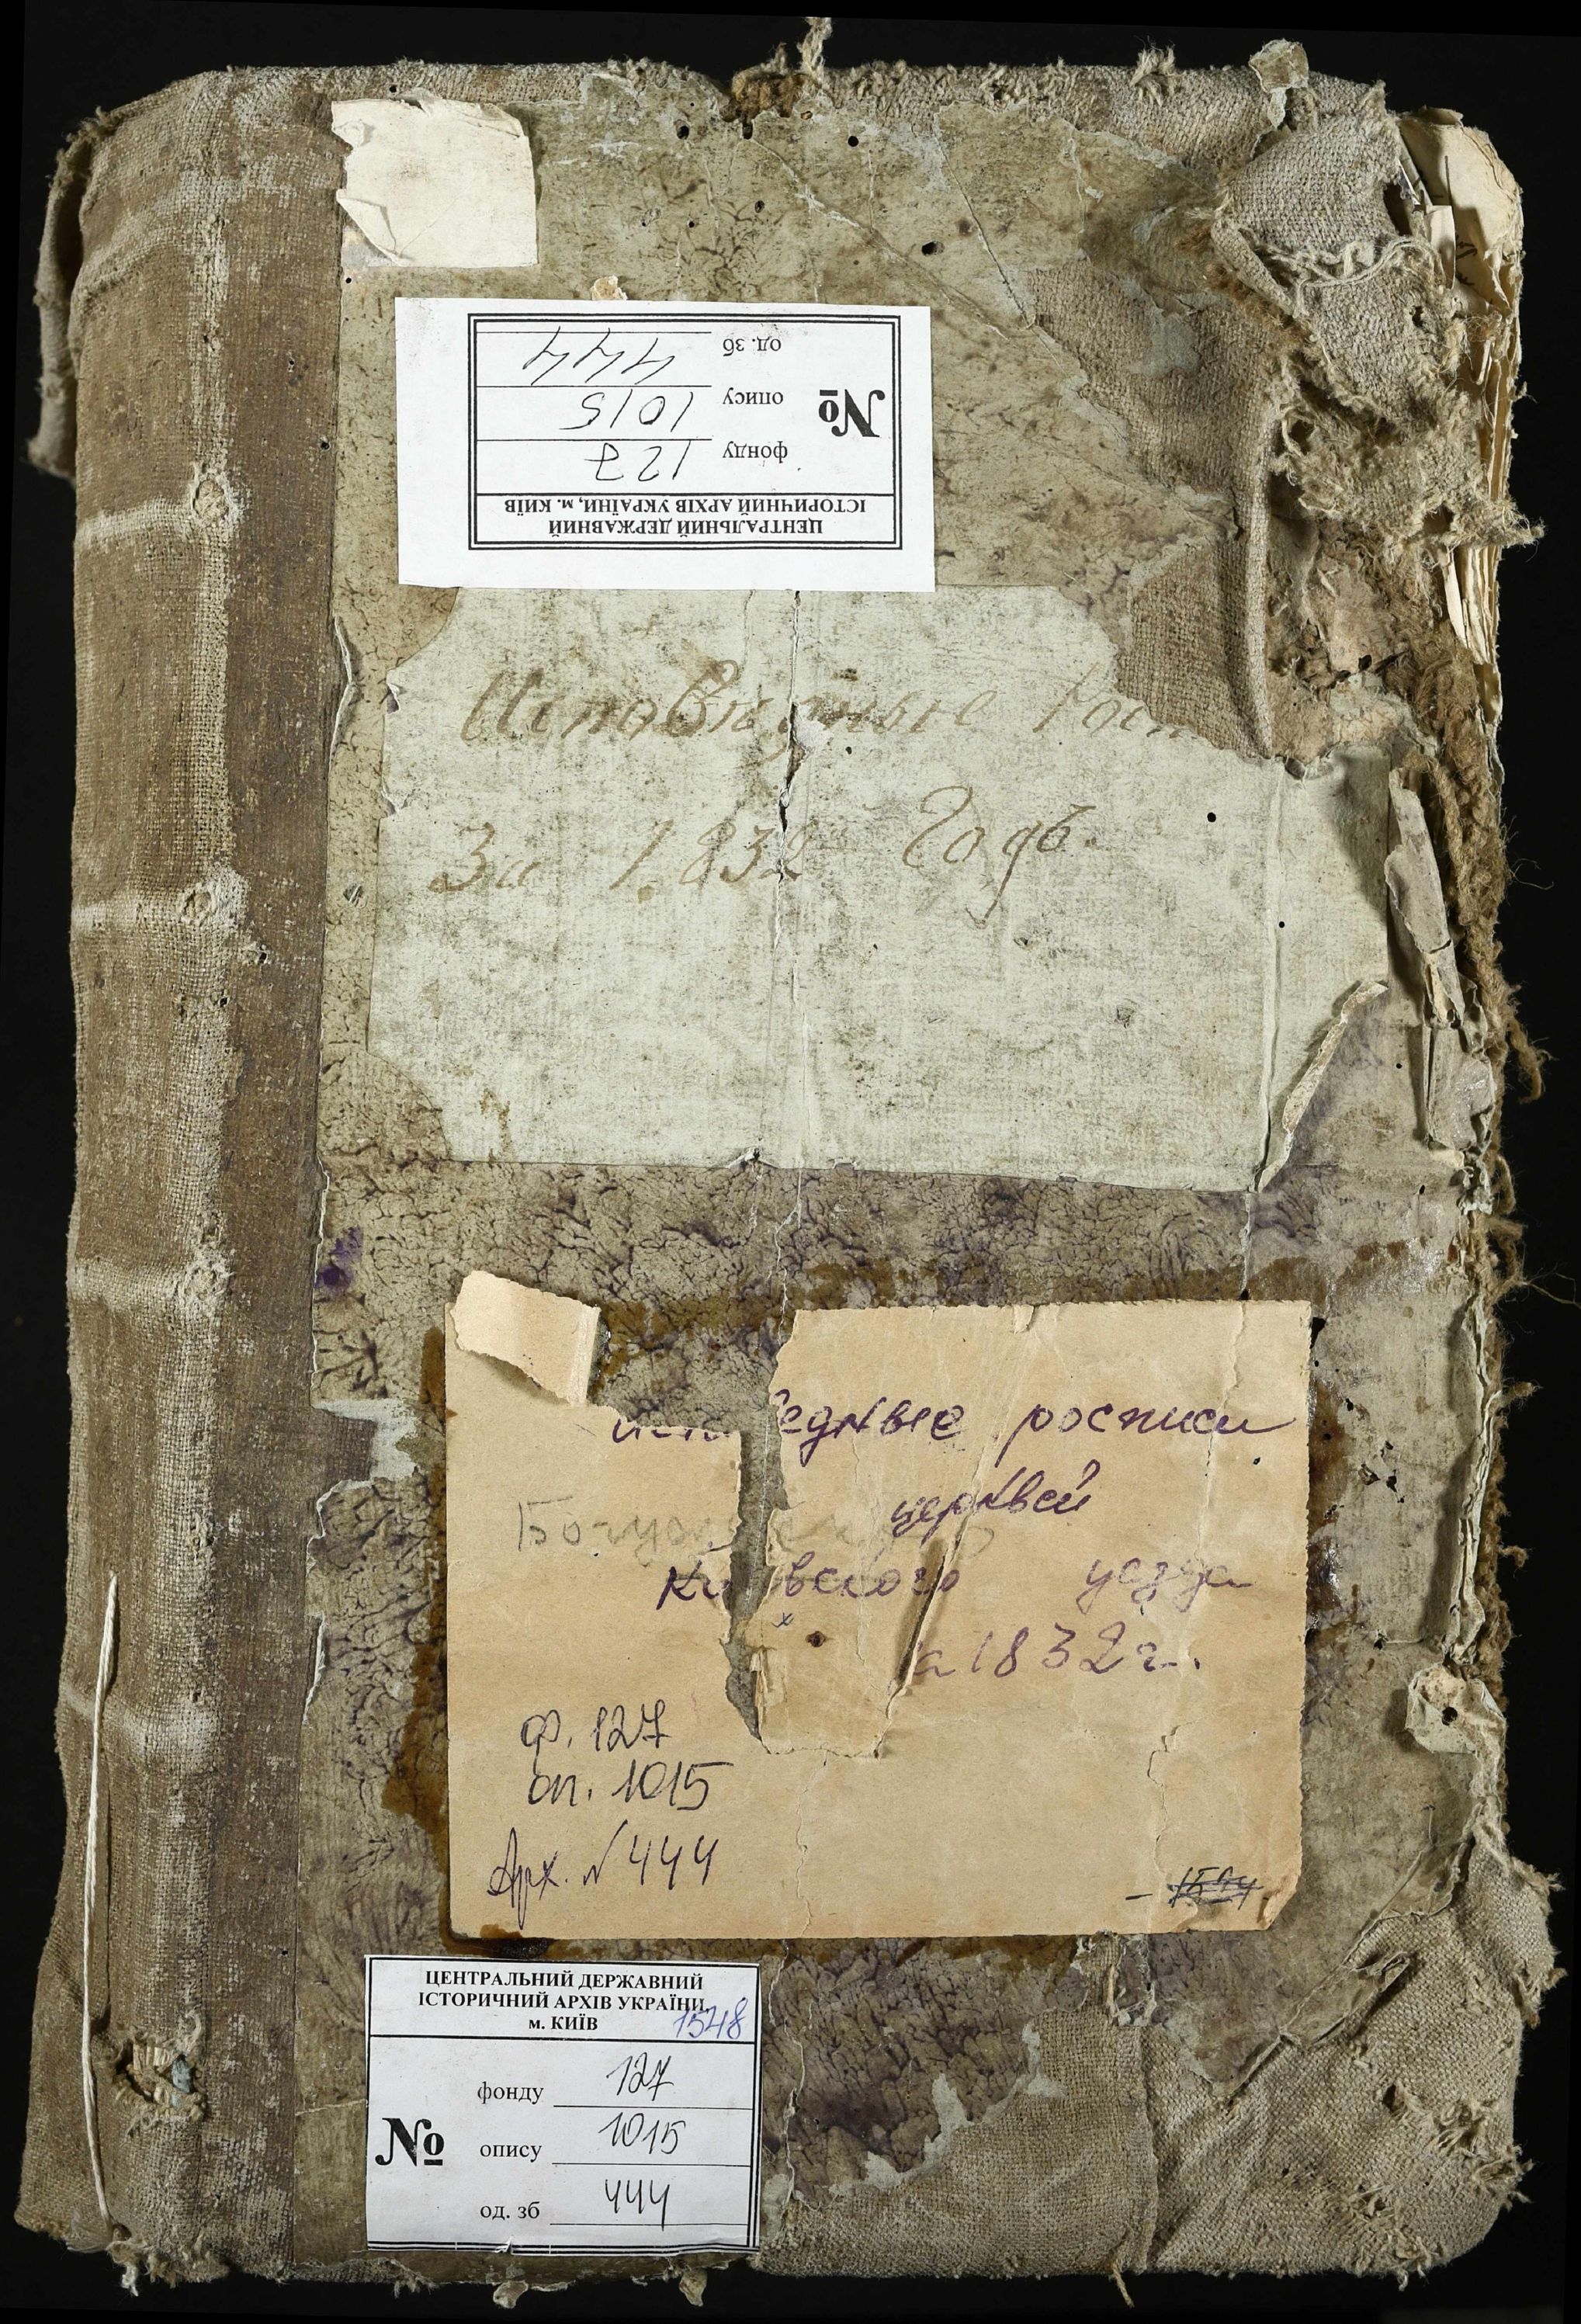 ЦЕНТРАЛЬНИЙ ДЕРЖАВНИЙ
ІСТОРИЧНИЙ АРХІВ УКРАЇНИ, м. КИЇВ
№
фонду 127
опису 1015
од. зб 444
Исповѣдные
За 1832 Годъ.
едные росписи
церквей
вского уезда
а 1832 г.
ф. 127
оп. 1015
Арх. № 444
ЦЕНТРАЛЬНИЙ ДЕРЖАВНИЙ
ІСТОРИЧНИЙ АРХІВ УКРАЇНИ,
м. КИЇВ 1548
№
фонду 127
опису 1015
од. зб 444